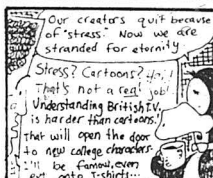 Our creators quit because
of "stress." Now we are
stranded for eternity
Stress? Cartoons? Ha!
That's not a real job!
Understanding British T.V.
is harder than cartoons!
That will open the door
to new college characters.
I'll be famous, even
get onto T-shirts...